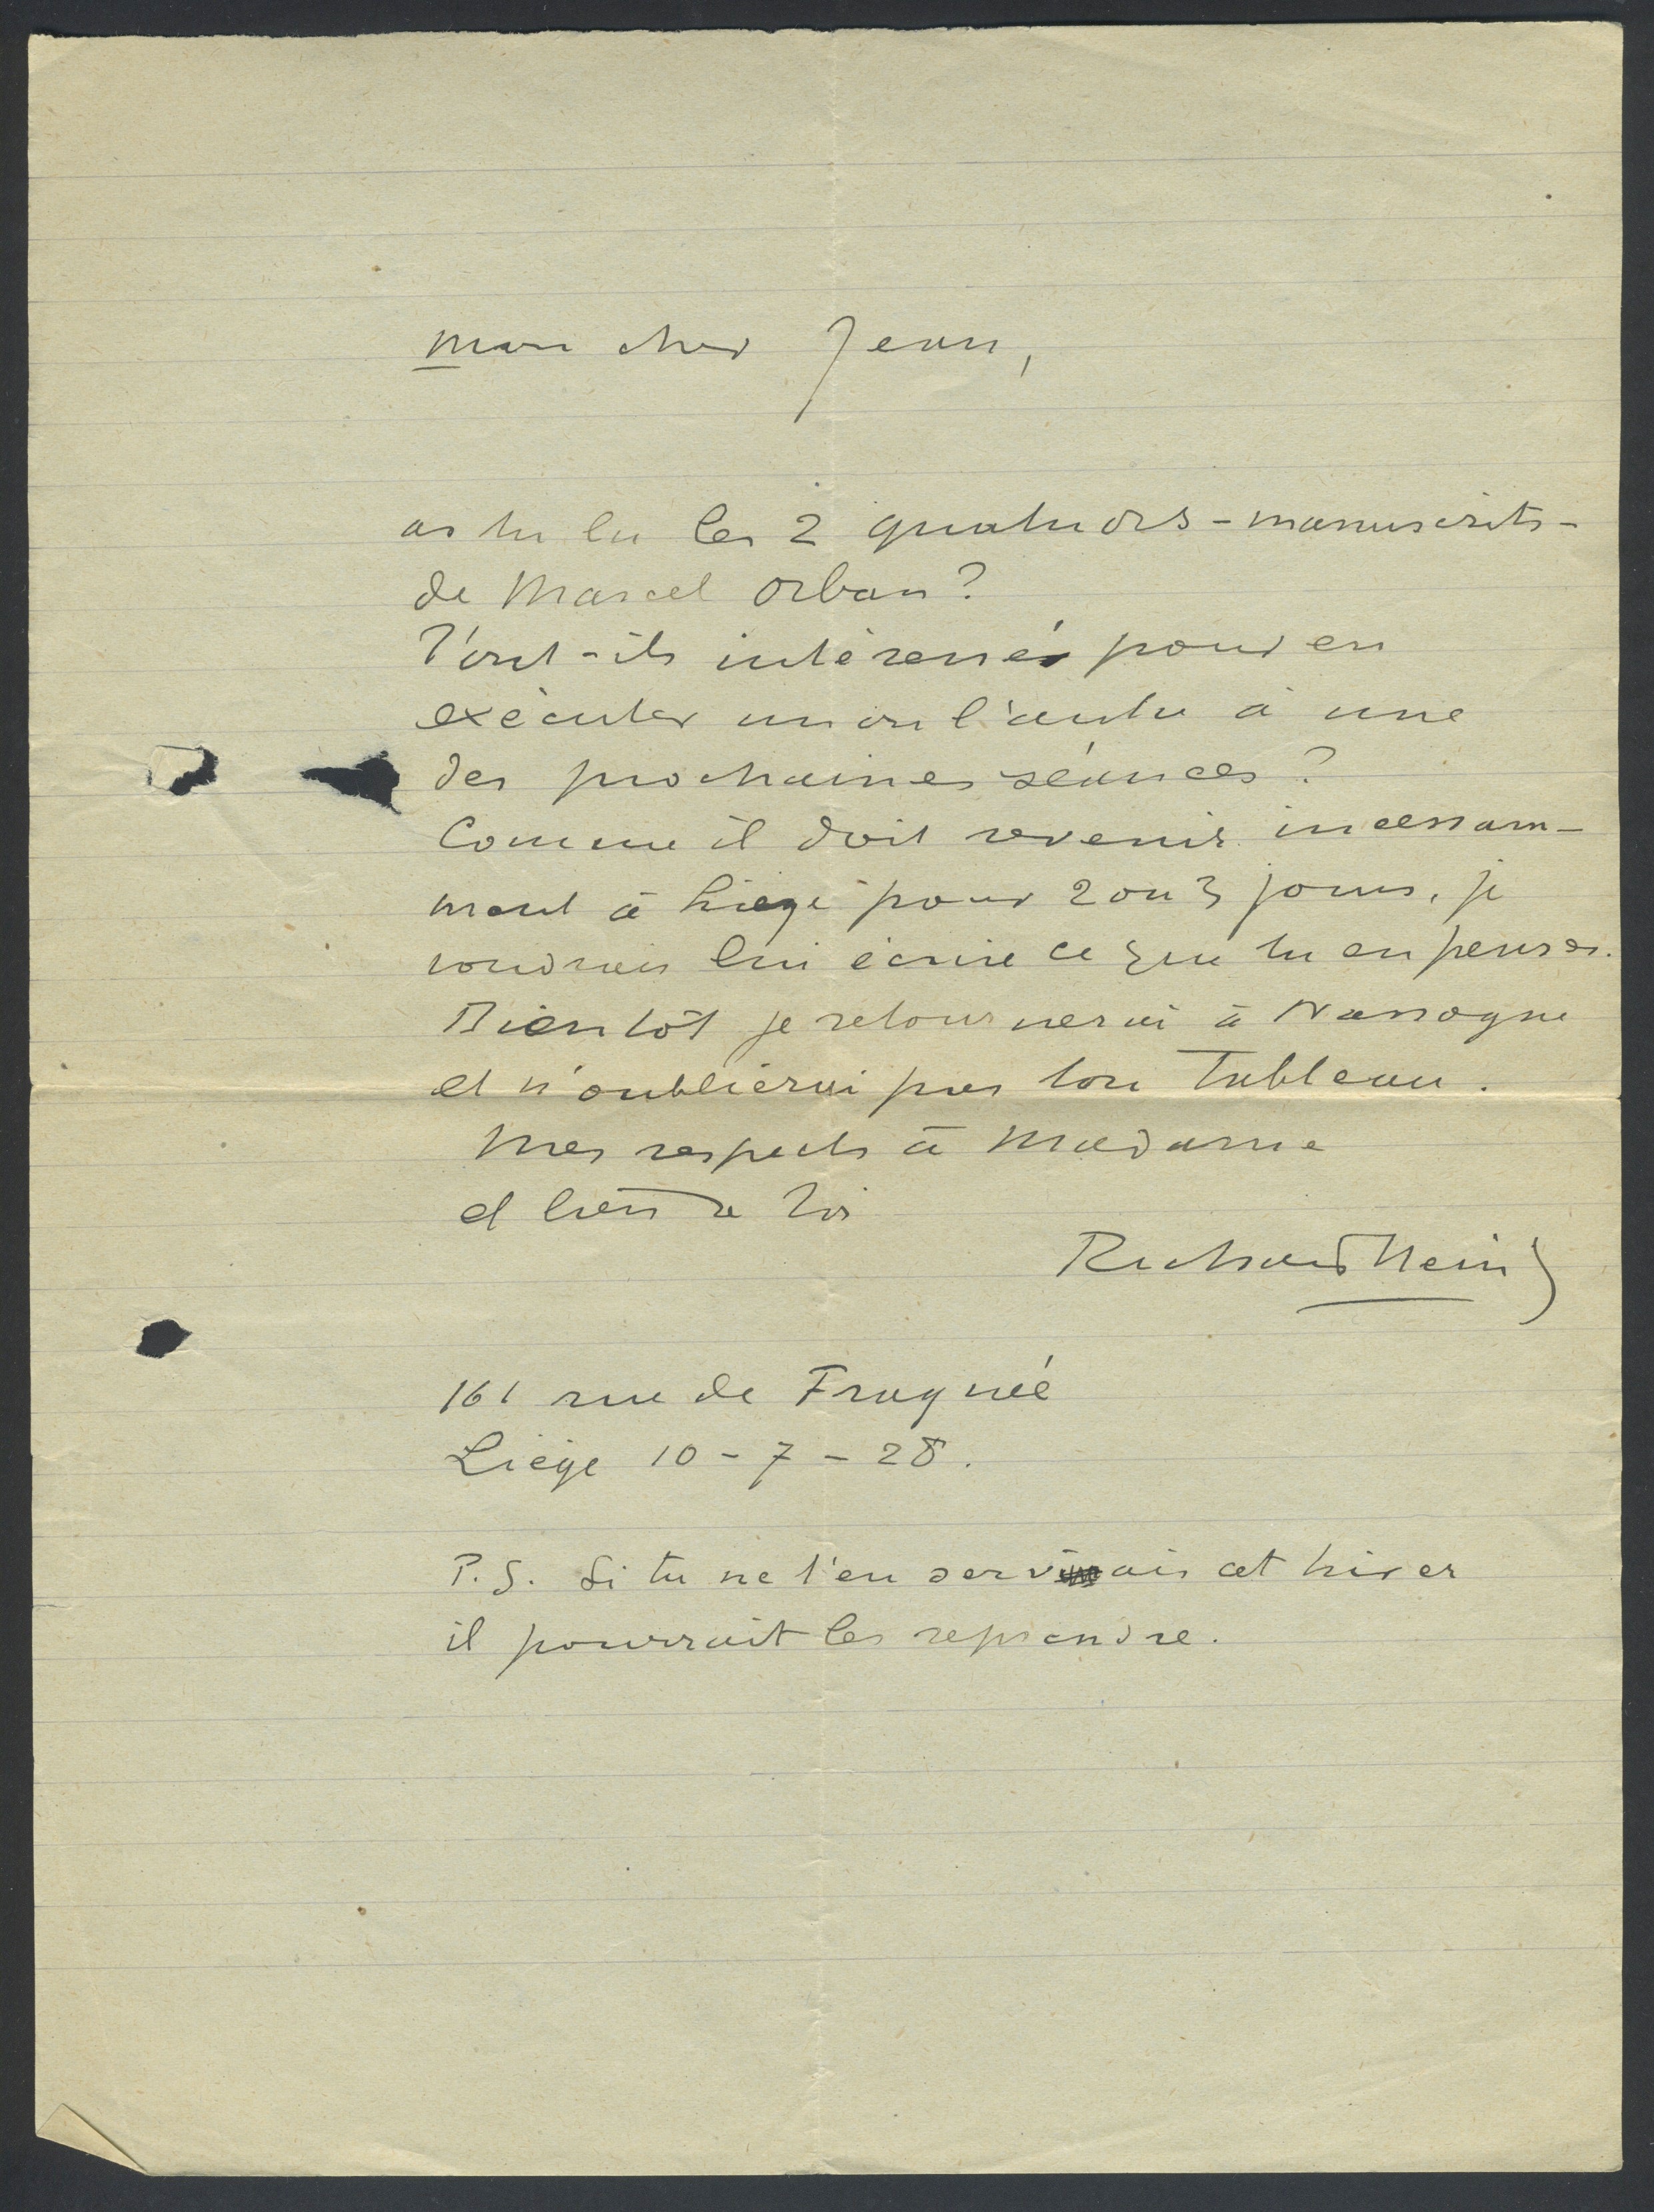 Mon cher Jean,
as tu lu les 2 quatuors - manuscrits -
de Marcel Orban?
T'ont-ils intéressés pour en
exécuter un ou l'autre à une
des prochaines séances?
Comme il doit revenir incessam-
ment à Liège pour 2 ou 3 jours, je
voudrais lui écrire ce que tu en penses.
Bientôt je retournerai à Nassogne
et n'oublierai pas ton Tableau.
Mes respects à Madame
et bien à toi
Richard Hein
161 rue de Fragnée
Liège 10-7-28.
P.S. Si tu ne t'en servais cet hiver
il pourrait les reprendre.